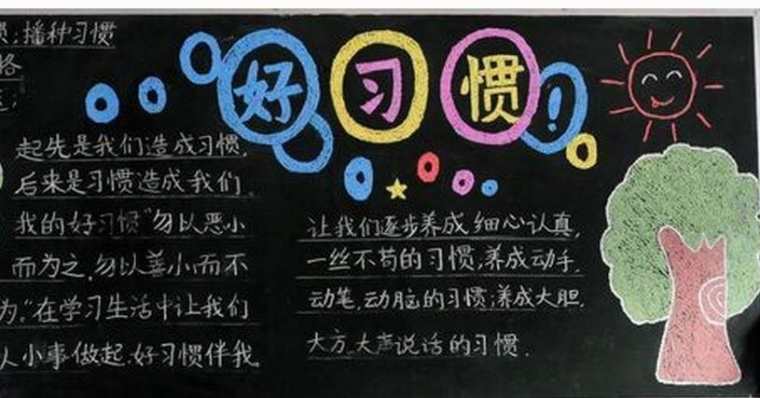 好习惯!
惯;播种习惯
格
起先是我们造成习惯,
后来是习惯造成我们.
我的好习惯"勿以恶小
而为之,勿以善小而不
为."在学习生活中让我们
从小事做起.好习惯伴我
让我们逐步养成细心认真,
一丝不苟的习惯,养成动手,
动笔,动脑的习惯;养成大胆.
大方,大声说话的习惯.